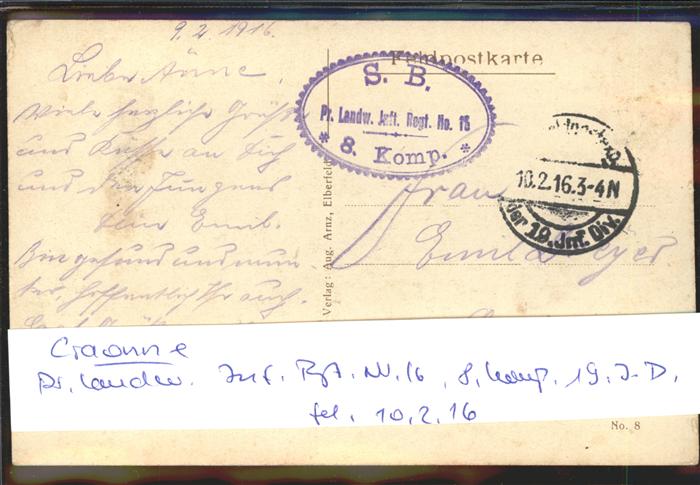 9.2.1916.
Liebe Änne,
Viele herzliche Grüße
und Küsse an Dich
und den Jungens
Dein Emil.
Bin gesund und mun-
ter hoffentlich Ihr auch.
Feldpostkarte
S. B.
Pr. Landw. Inft. Regt. No. 16
* 8. Komp. *
10.2.16.3-4N
der 19. Inf. Div.
Frau
Emil
Verlag: Aug. Arnz, Elberfeld
Craonne
Pr. Landw. Inf. Rgt. Nr. 16, 8. Komp. 19. I.D.
gel. 10.2.16
No. 8